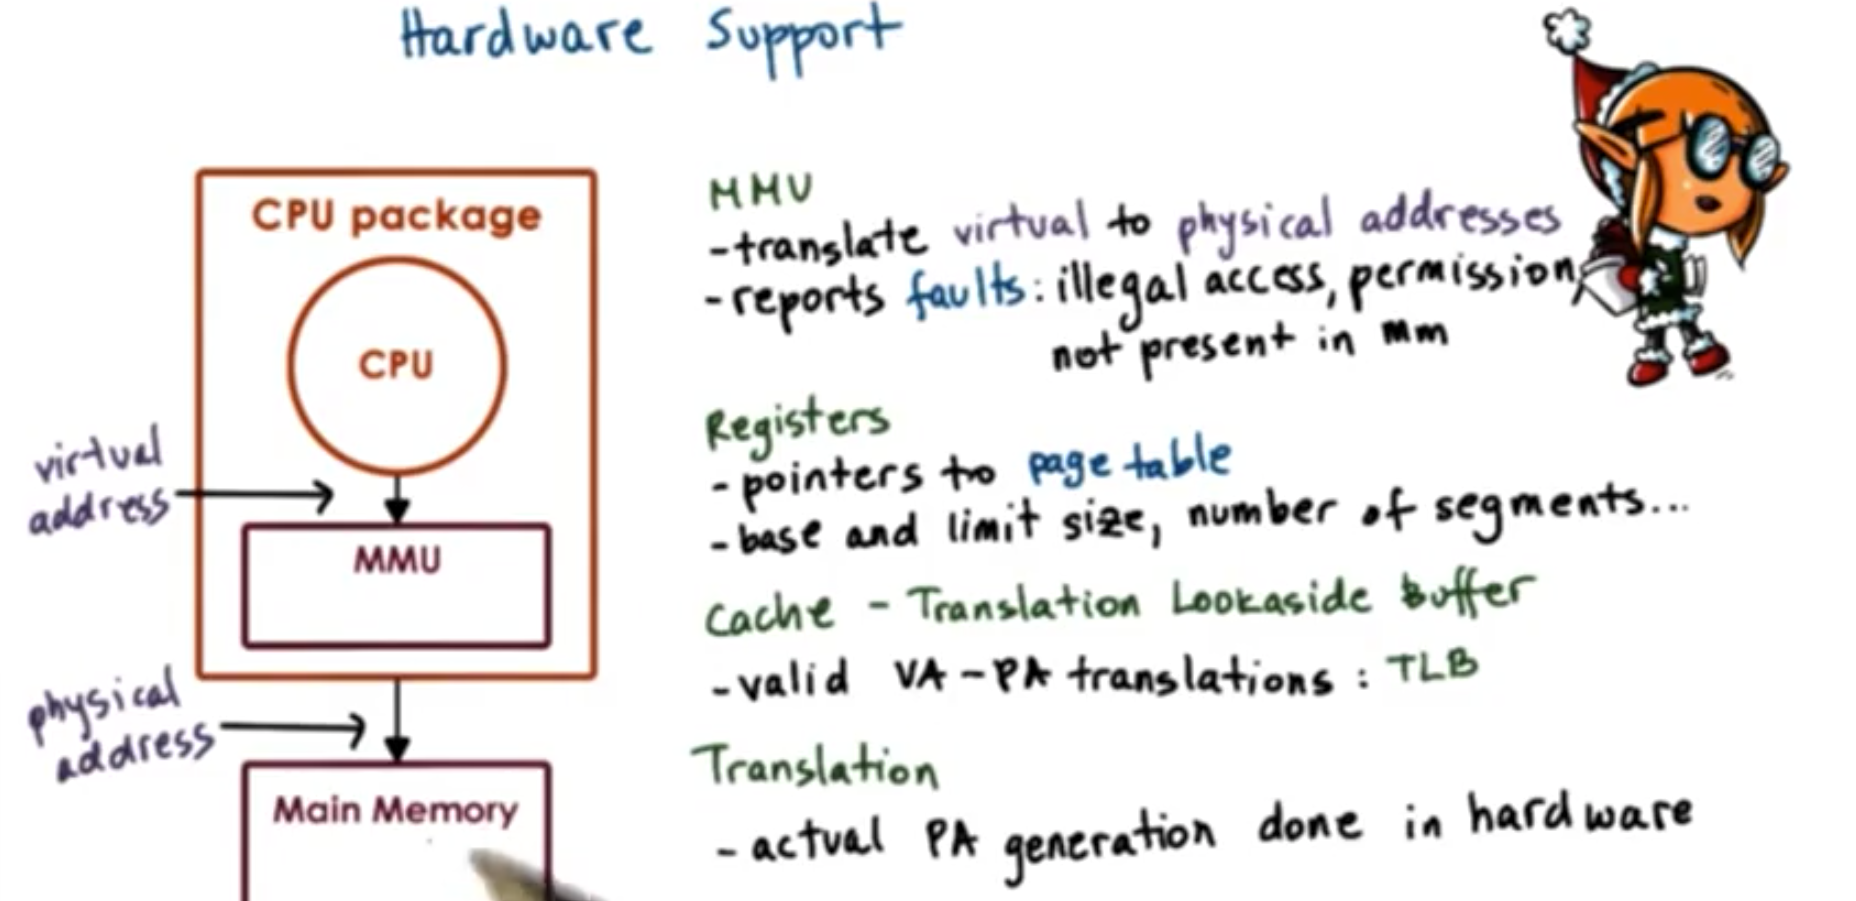 Hardware Support
CPU package
CPU
virtual
address
MMU
physical
address
Main Memory
MMU
-translate virtual to physical addresses
-reports faults: illegal access, permission,
not present in mm
Registers
-pointers to page table
-base and limit size, number of segments...
Cache - Translation Lookaside Buffer
-valid VA-PA translations: TLB
Translation
-actual PA generation done in hardware